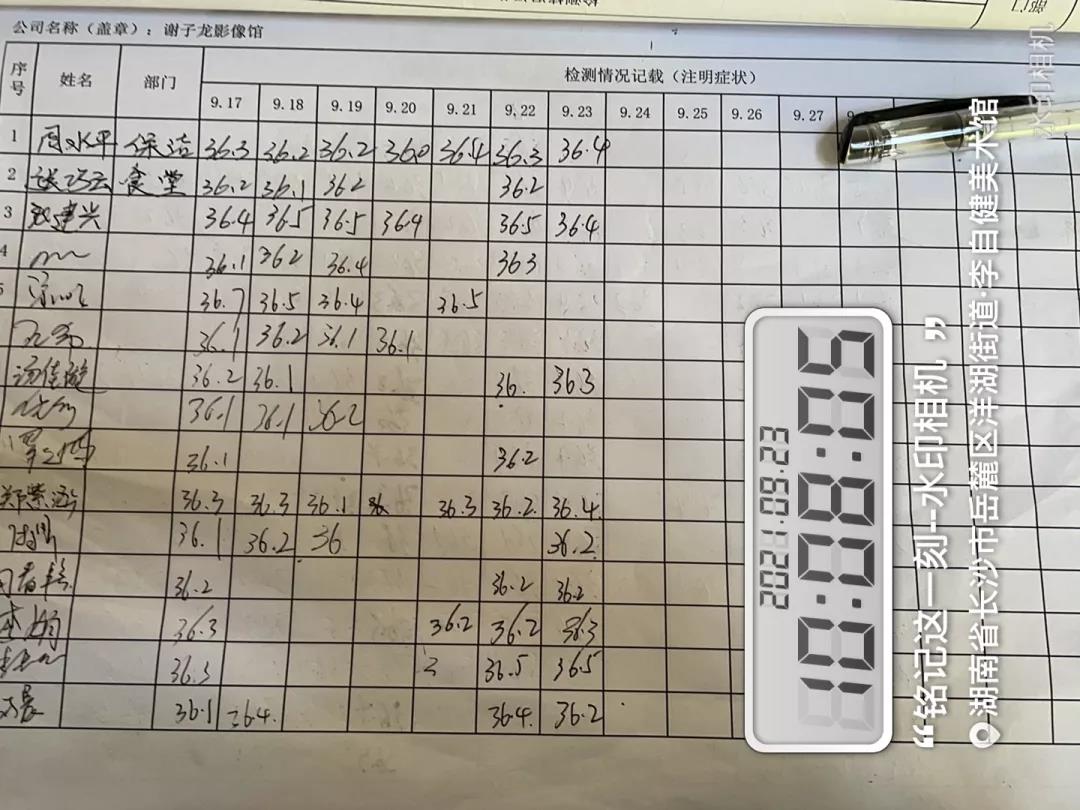 公司名称（盖章）：谢子龙影像馆
序号 姓名 部门 检测情况记载（注明症状）
9.17 9.18 9.19 9.20 9.21 9.22 9.23 9.24 9.25 9.26 9.27
1 周水平 保洁 36.3 36.2 36.2 36.0 36.4 36.3 36.4
2 食堂 36.2 36.1 36.2 36.2
3 建兴 36.4 36.5 36.5 36.4 36.5 36.4
4 36.1 36.2 36.4 36.3
5 36.7 36.5 36.4 36.5
36.1 36.2 36.1 36.1
36.2 36.1 36. 36.3
36.1 36.1 36.2
36.1 36.2
郑紫涵 36.3 36.3 36.1 36.3 36.2 36.4
36.1 36.2 36 36.2
36.2 36.2 36.2
36.3 36.2 36.2 36.3
36.3 36.5 36.5
36.1 36.4 36.4 36.2
10:08:05
2021.09.23
“铭记这一刻--水印相机 ”
湖南省长沙市岳麓区洋湖街道·李自健美术馆
水印相机
部门